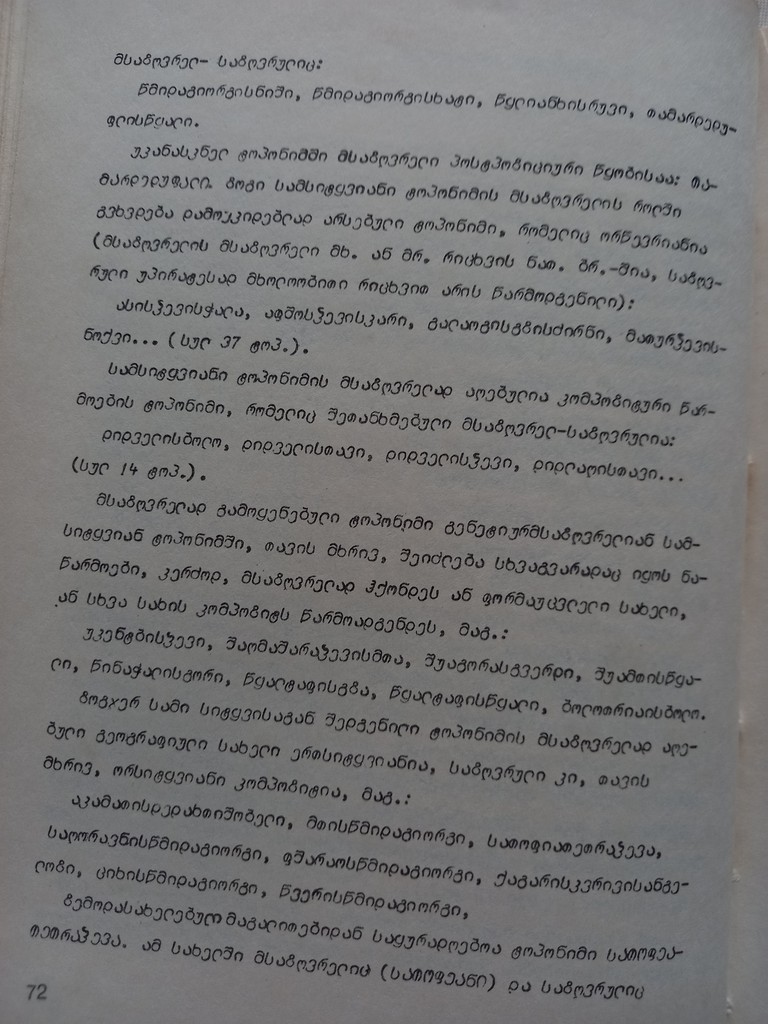 მსაზღვრელ- საზღვრულიც:
წმიდაგიორგისნიში, წმიდაგიორგისხატი, წყლიანხისრუვი, თამარდედუ-
ფლისწყალი.
უკანასკნელ ტოპონიმში მსაზღვრელი პოსტპოზიციური წყობისაა: თა-
მარდედუფალი. ზოგი სამსიტყვიანი ტოპონიმის მსაზღვრელის როლში
გვხვდება დამოუკიდებლად არსებული ტოპონიმი, რომელიც ორწევრიანია
(მსაზღვრელის მსაზღვრელი მხ. ან მრ. რიცხვის ნათ. ბრ.-შია, საზღვ-
რული უპირატესად მხოლოობითი რიცხვით არის წარმოდგენილი):
ასისჴევისჭალა, აფშოსჴევისკარი, გალაოგისგზისძირნი, მათურჴევის-
წოქვი... (სულ 37 ტოპ.).
სამსიტყვიანი ტოპონიმის მსაზღვრელად აღებულია კომპოზიტური წარ-
მოების ტოპონიმი, რომელიც შეთანხმებული მსაზღვრელ-საზღვრულია:
დიდველისბოლო, დიდველისთავი, დიდველისჴევი, დიდლაღისთავი...
(სულ 14 ტოპ.).
მსაზღვრელად გამოყენებული ტოპონიმი გენეტიურმსაზღვრელიან სამ-
სიტყვიან ტოპონიმში, თავის მხრივ, შეიძლება სხვაგვარადაც იყოს ნა-
წარმოები, კერძოდ, მსაზღვრელად ჰქონდეს ან ფორმაუცვლელი სახელი,
ან სხვა სახის კომპოზიტს წარმოადგენდეს, მაგ.:
უკენტბისჴევი, შაღმაშარაჴევისმთა, შუაგორასგვერდი, შუამთისწყა-
ლი, წინაჭალისგორი, წყალტაფისგზა, წყალტაფისწყალი, ბოლოთრიაისბოლო.
ზოგჯერ სამი სიტყვისაგან შედგენილი ტოპონიმის მსაზღვრელად აღე-
ბული გეოგრაფიული სახელი ერთსიტყვიანია, საზღვრული კი, თავის
მხრივ, ორსიტყვიანი კომპოზიტია, მაგ.:
აკამათისდედახთიშობელი, მთისწმიდაგიორგი, სათოფიათეთრაჴევა,
საღორავნისწმიდაგიორგი, ფშარაოსწმიდაგიორგი, ქაგარისკვრივისანგე-
ლოზი, ციხისწმიდაგიორგი, წვერისწმიდაგიორგი,
ზემოდასახელებულ მაგალითებიდან საყურადღებოა ტოპონიმი სათოფეა-
თეთრაჴევა. ამ სახელში მსაზღვრელიც (სათოფეანი) და საზღვრულიც
72